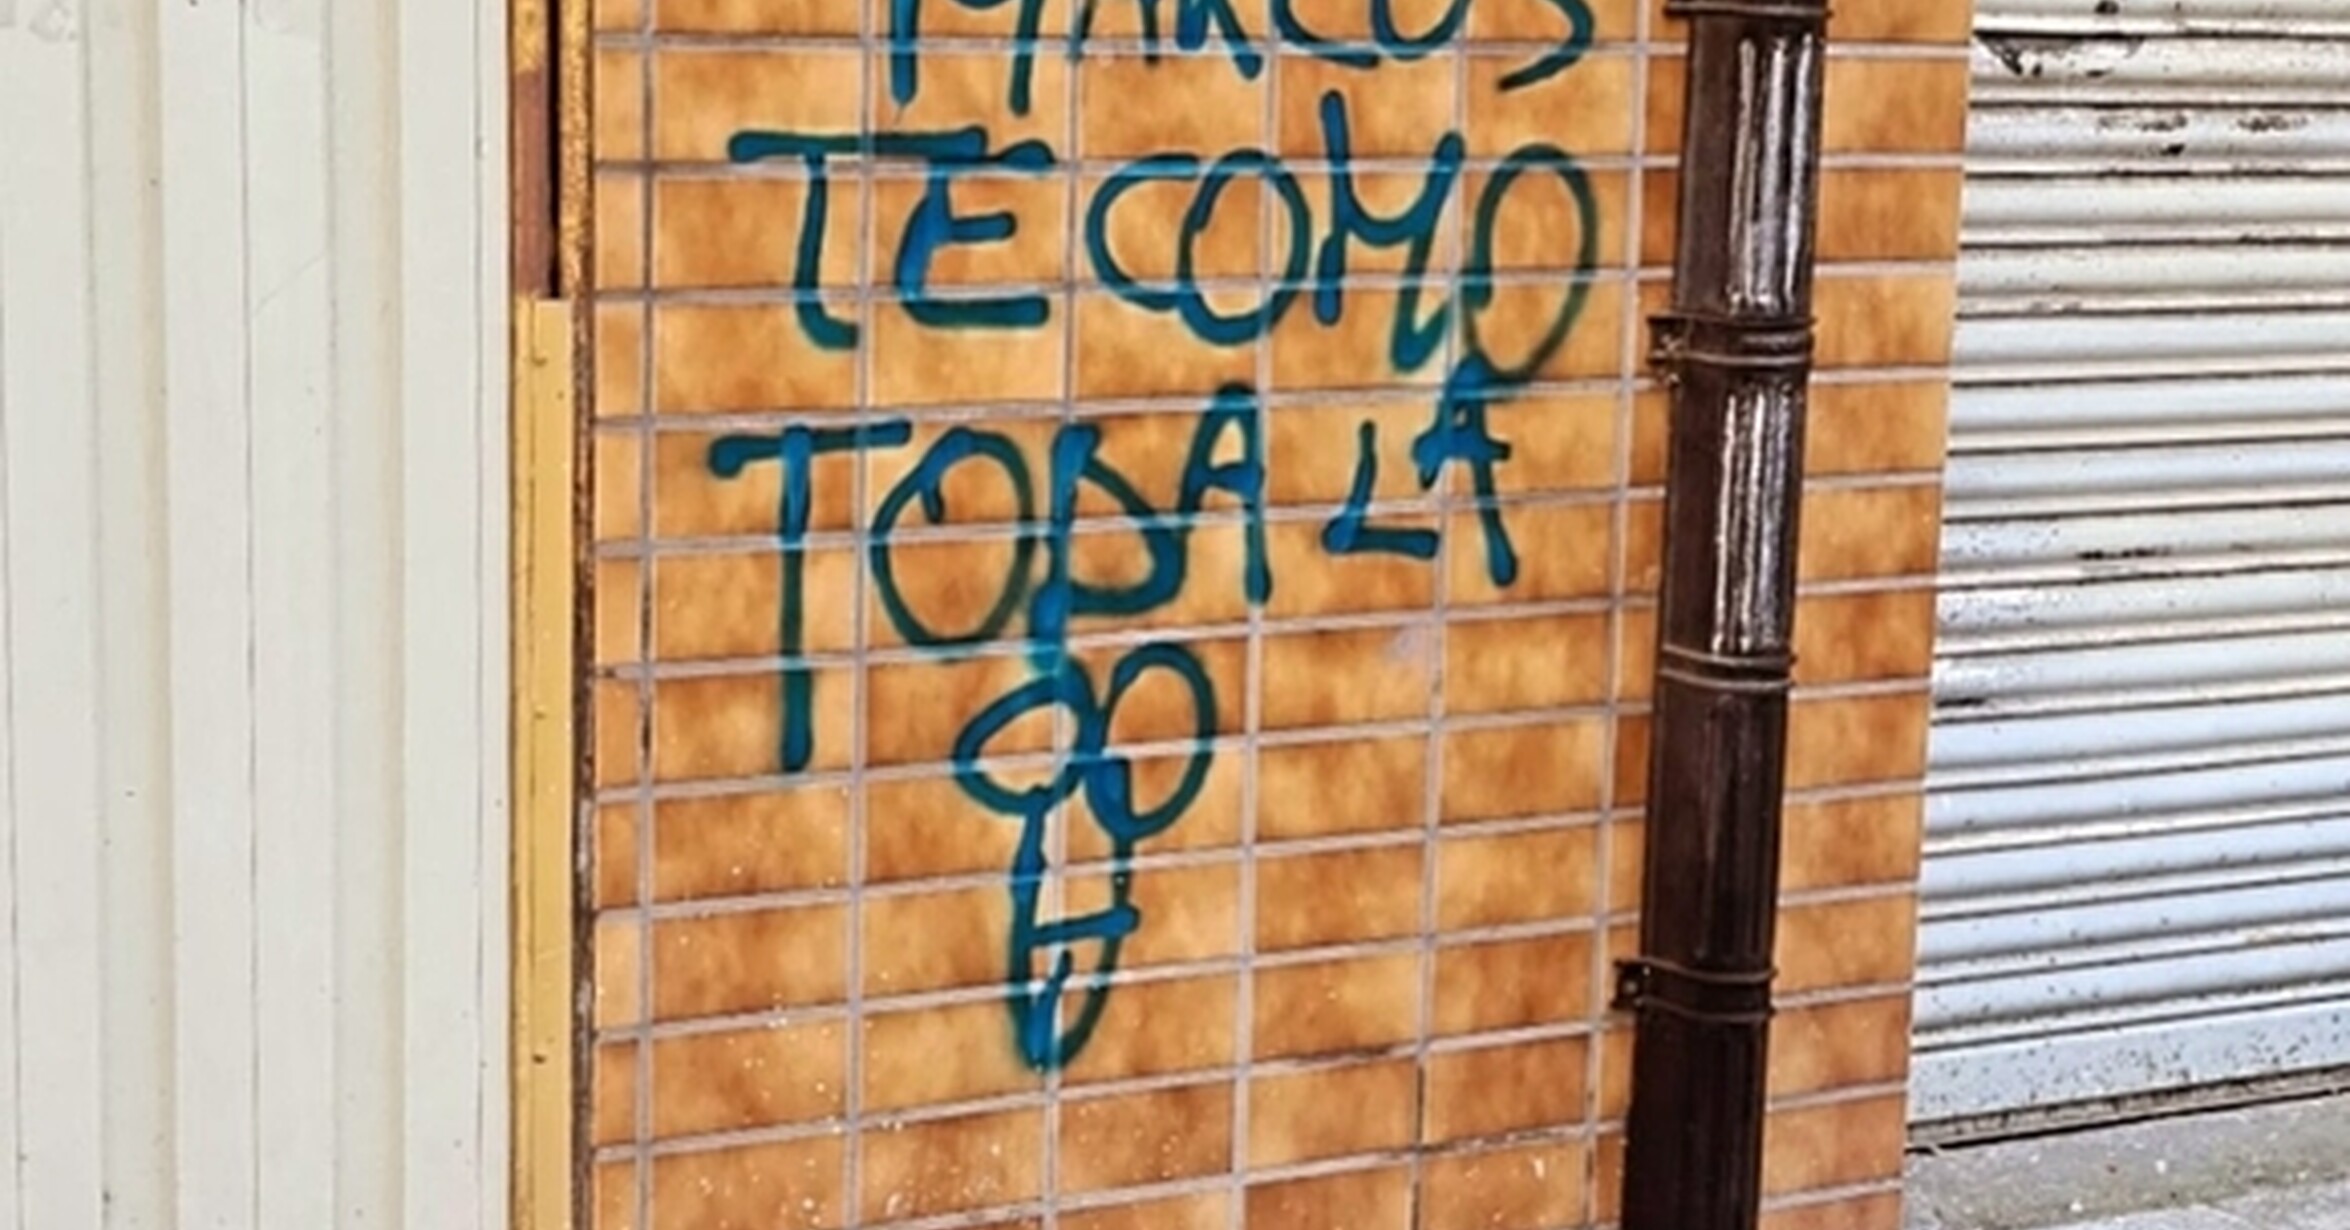 MARCOS
TE COMO
TODA LA